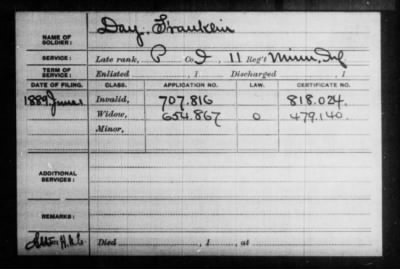 NAME OF SOLDIER: Day, Franklin
SERVICE: Late rank, P Co. I, 11 Reg't Minn. Inf
TERM OF SERVICE: Enlisted , 1 Discharged , 1
DATE OF FILING. CLASS. APPLICATION NO. LAW. CERTIFICATE NO.
1889 June 1 Invalid, 707.816 818.024.
Widow, 654.867 O 479.140.
Minor,
ADDITIONAL SERVICES:
REMARKS:
Died , 1 , at